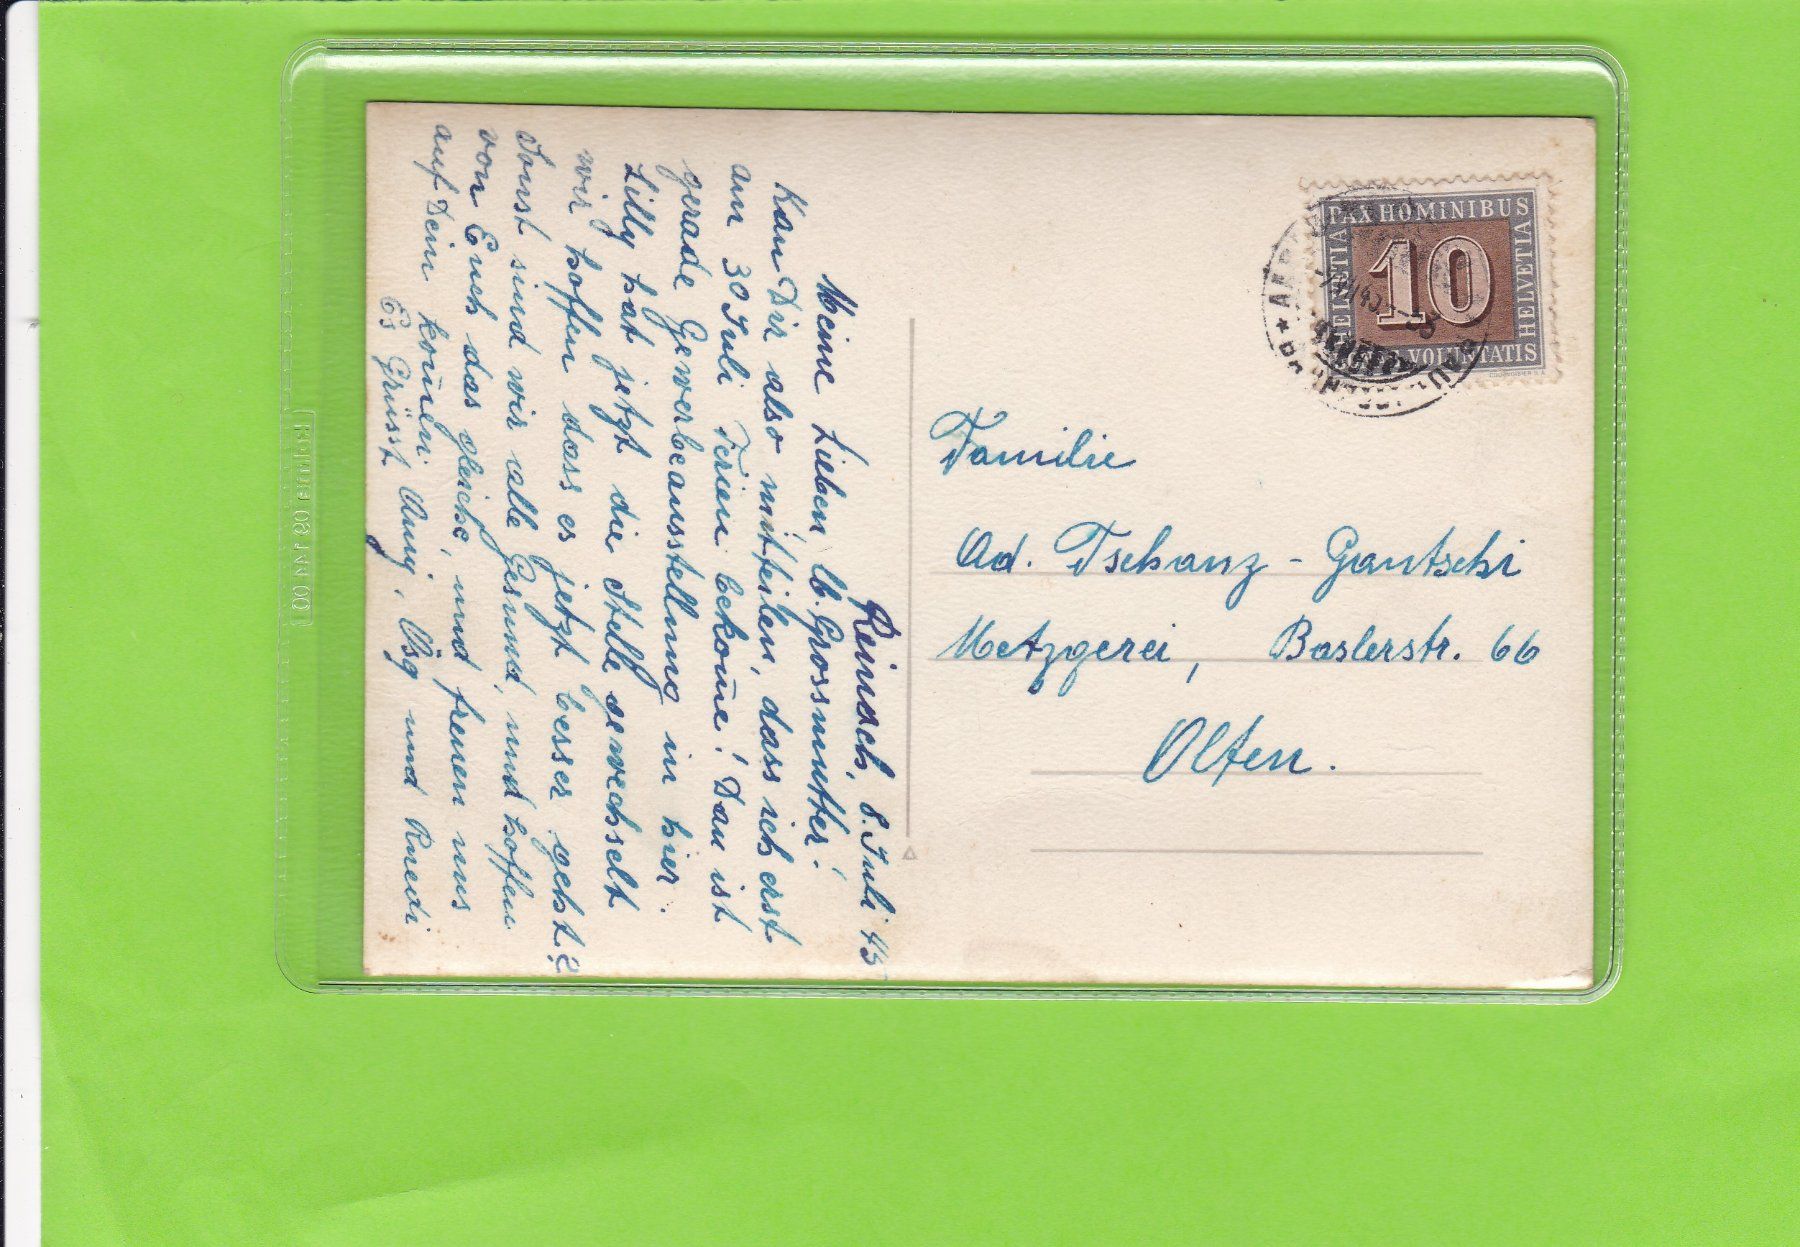 Reinach, 8. Juli 45
Meine Lieben, lb. Grossmutter!
Kan̄ Dir also mitteilen, dass ich erst
am 30 Juli Ferien bekom̄e! Dan̄ ist
gerade Gewerbeausstellung in hier.
Lilly hat jetzt die Stelle gewechselt
wir hoffen dass es jetzt besser geht?
Sonst sind wir alle Gesund, und hoffen
von Euch das gleiche, und freuen uns
auf Dein kom̄en.
Es Grüsst und Ruedi
PAX HOMINIBUS
HELVETIA
10
HELVETIA
VOLUNTATIS
COURVOISIER S.A.
Familie
Ad. Tschanz - Gautschi
Metzgerei, Baslerstr. 66
Olten.